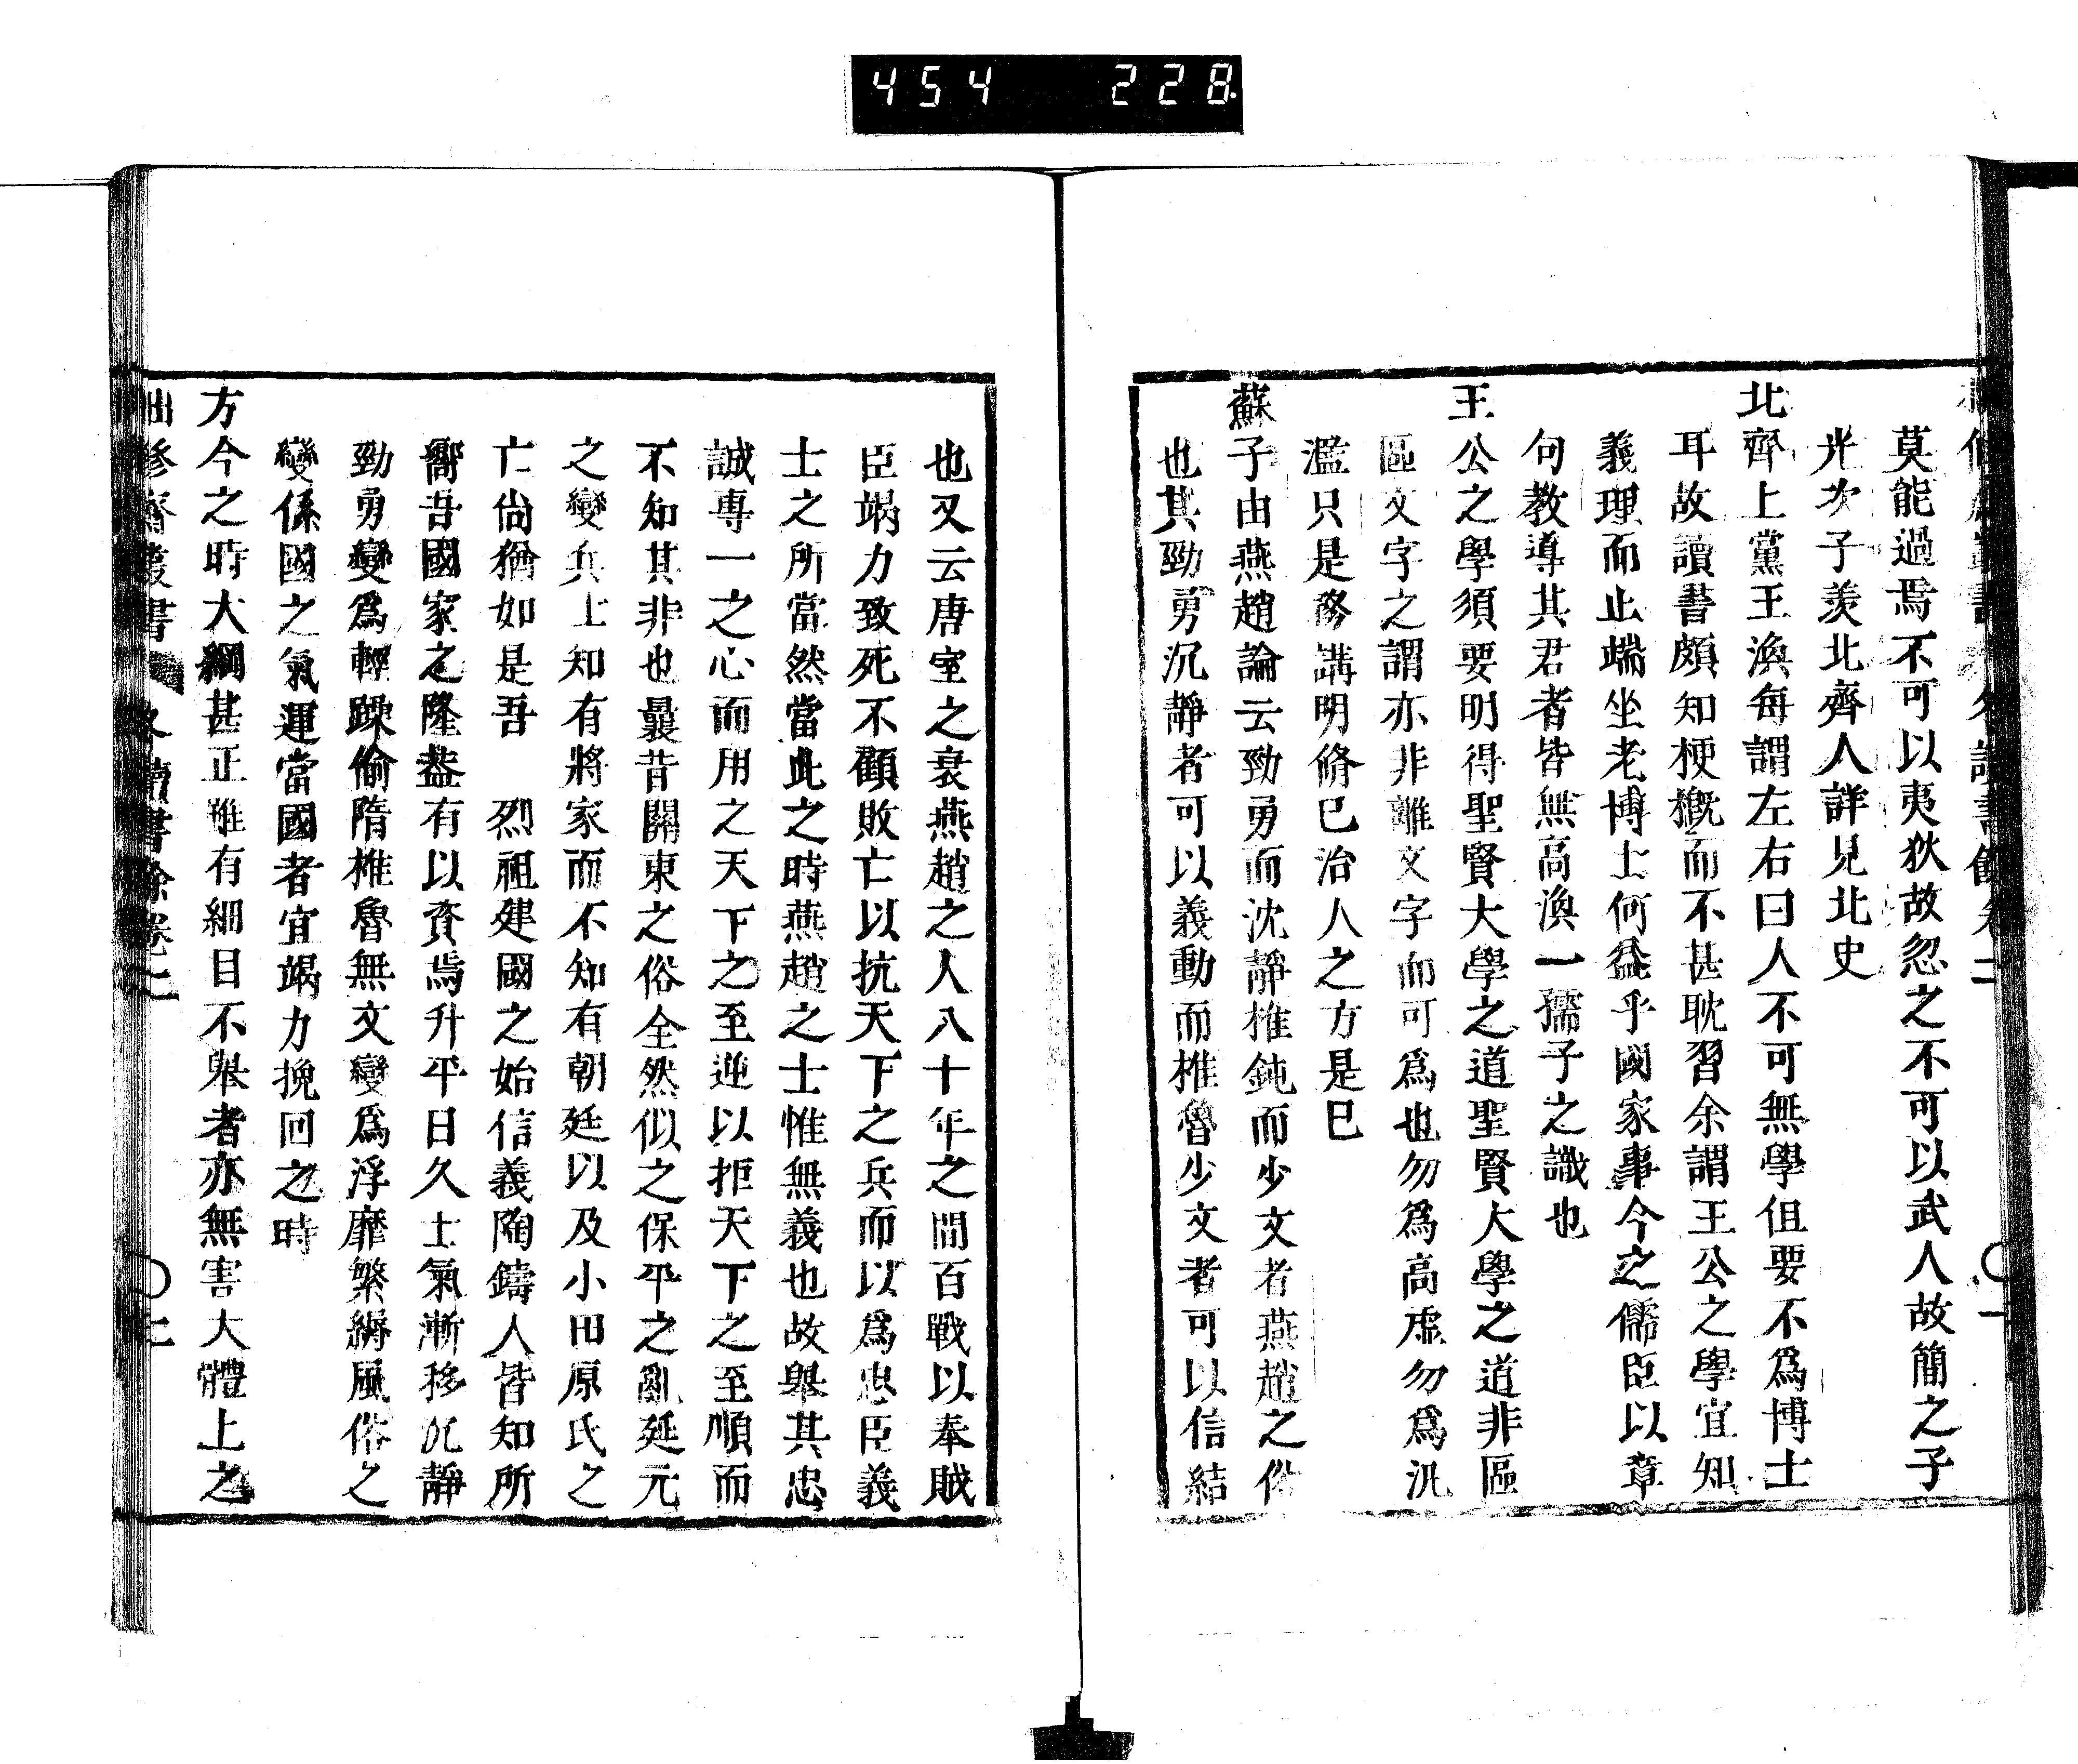 454 228
莫能過焉不可以夷狄故忽之不可以武人故簡之子
光次子羨北齊人詳見北史
北齊上黨王渙每謂左右曰人不可無學但要不爲博士
耳故讀書頗知梗槪而不甚耽習余謂王公之學宜知
義理而止端坐老博士何益乎國家事今之儒臣以章
句教導其君者皆無高渙一孺子之識也
王公之學須要明得聖賢大學之道聖賢大學之道非區
區文字之謂亦非離文字而可爲也勿爲高虛勿爲汎
濫只是務講明脩已治人之方是已
蘇子由燕趙論云勁勇而沈靜椎鈍而少文者燕趙之俗
也其勁勇沉靜者可以義動而椎魯少文者可以信結
也又云唐室之衰燕趙之人八十年之間百戰以奉賊
臣竭力致死不顧敗亡以抗天下之兵而以爲忠臣義
士之所當然當此之時燕趙之士惟無義也故舉其忠
誠專一之心而用之天下之至逆以拒天下之至順而
不知其非也曩昔關東之俗全然似之保平之亂延元
之變兵士知有將家而不知有朝廷以及小田原氏之
亡尙猶如是吾 烈祖建國之始信義陶鑄人皆知所
嚮吾國家之隆葢有以資焉升平日久士氣漸移沉靜
勁勇變爲輕躁偷隋椎魯無文變爲浮靡繁縟風俗之
變係國之氣運當國者宜竭力挽回之時
方今之時大綱甚正雖有細目不舉者亦無害大體上之